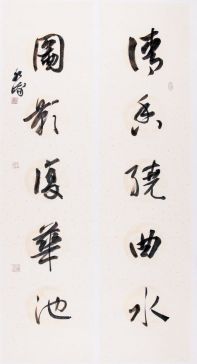 清香繞曲水
圓影復華池